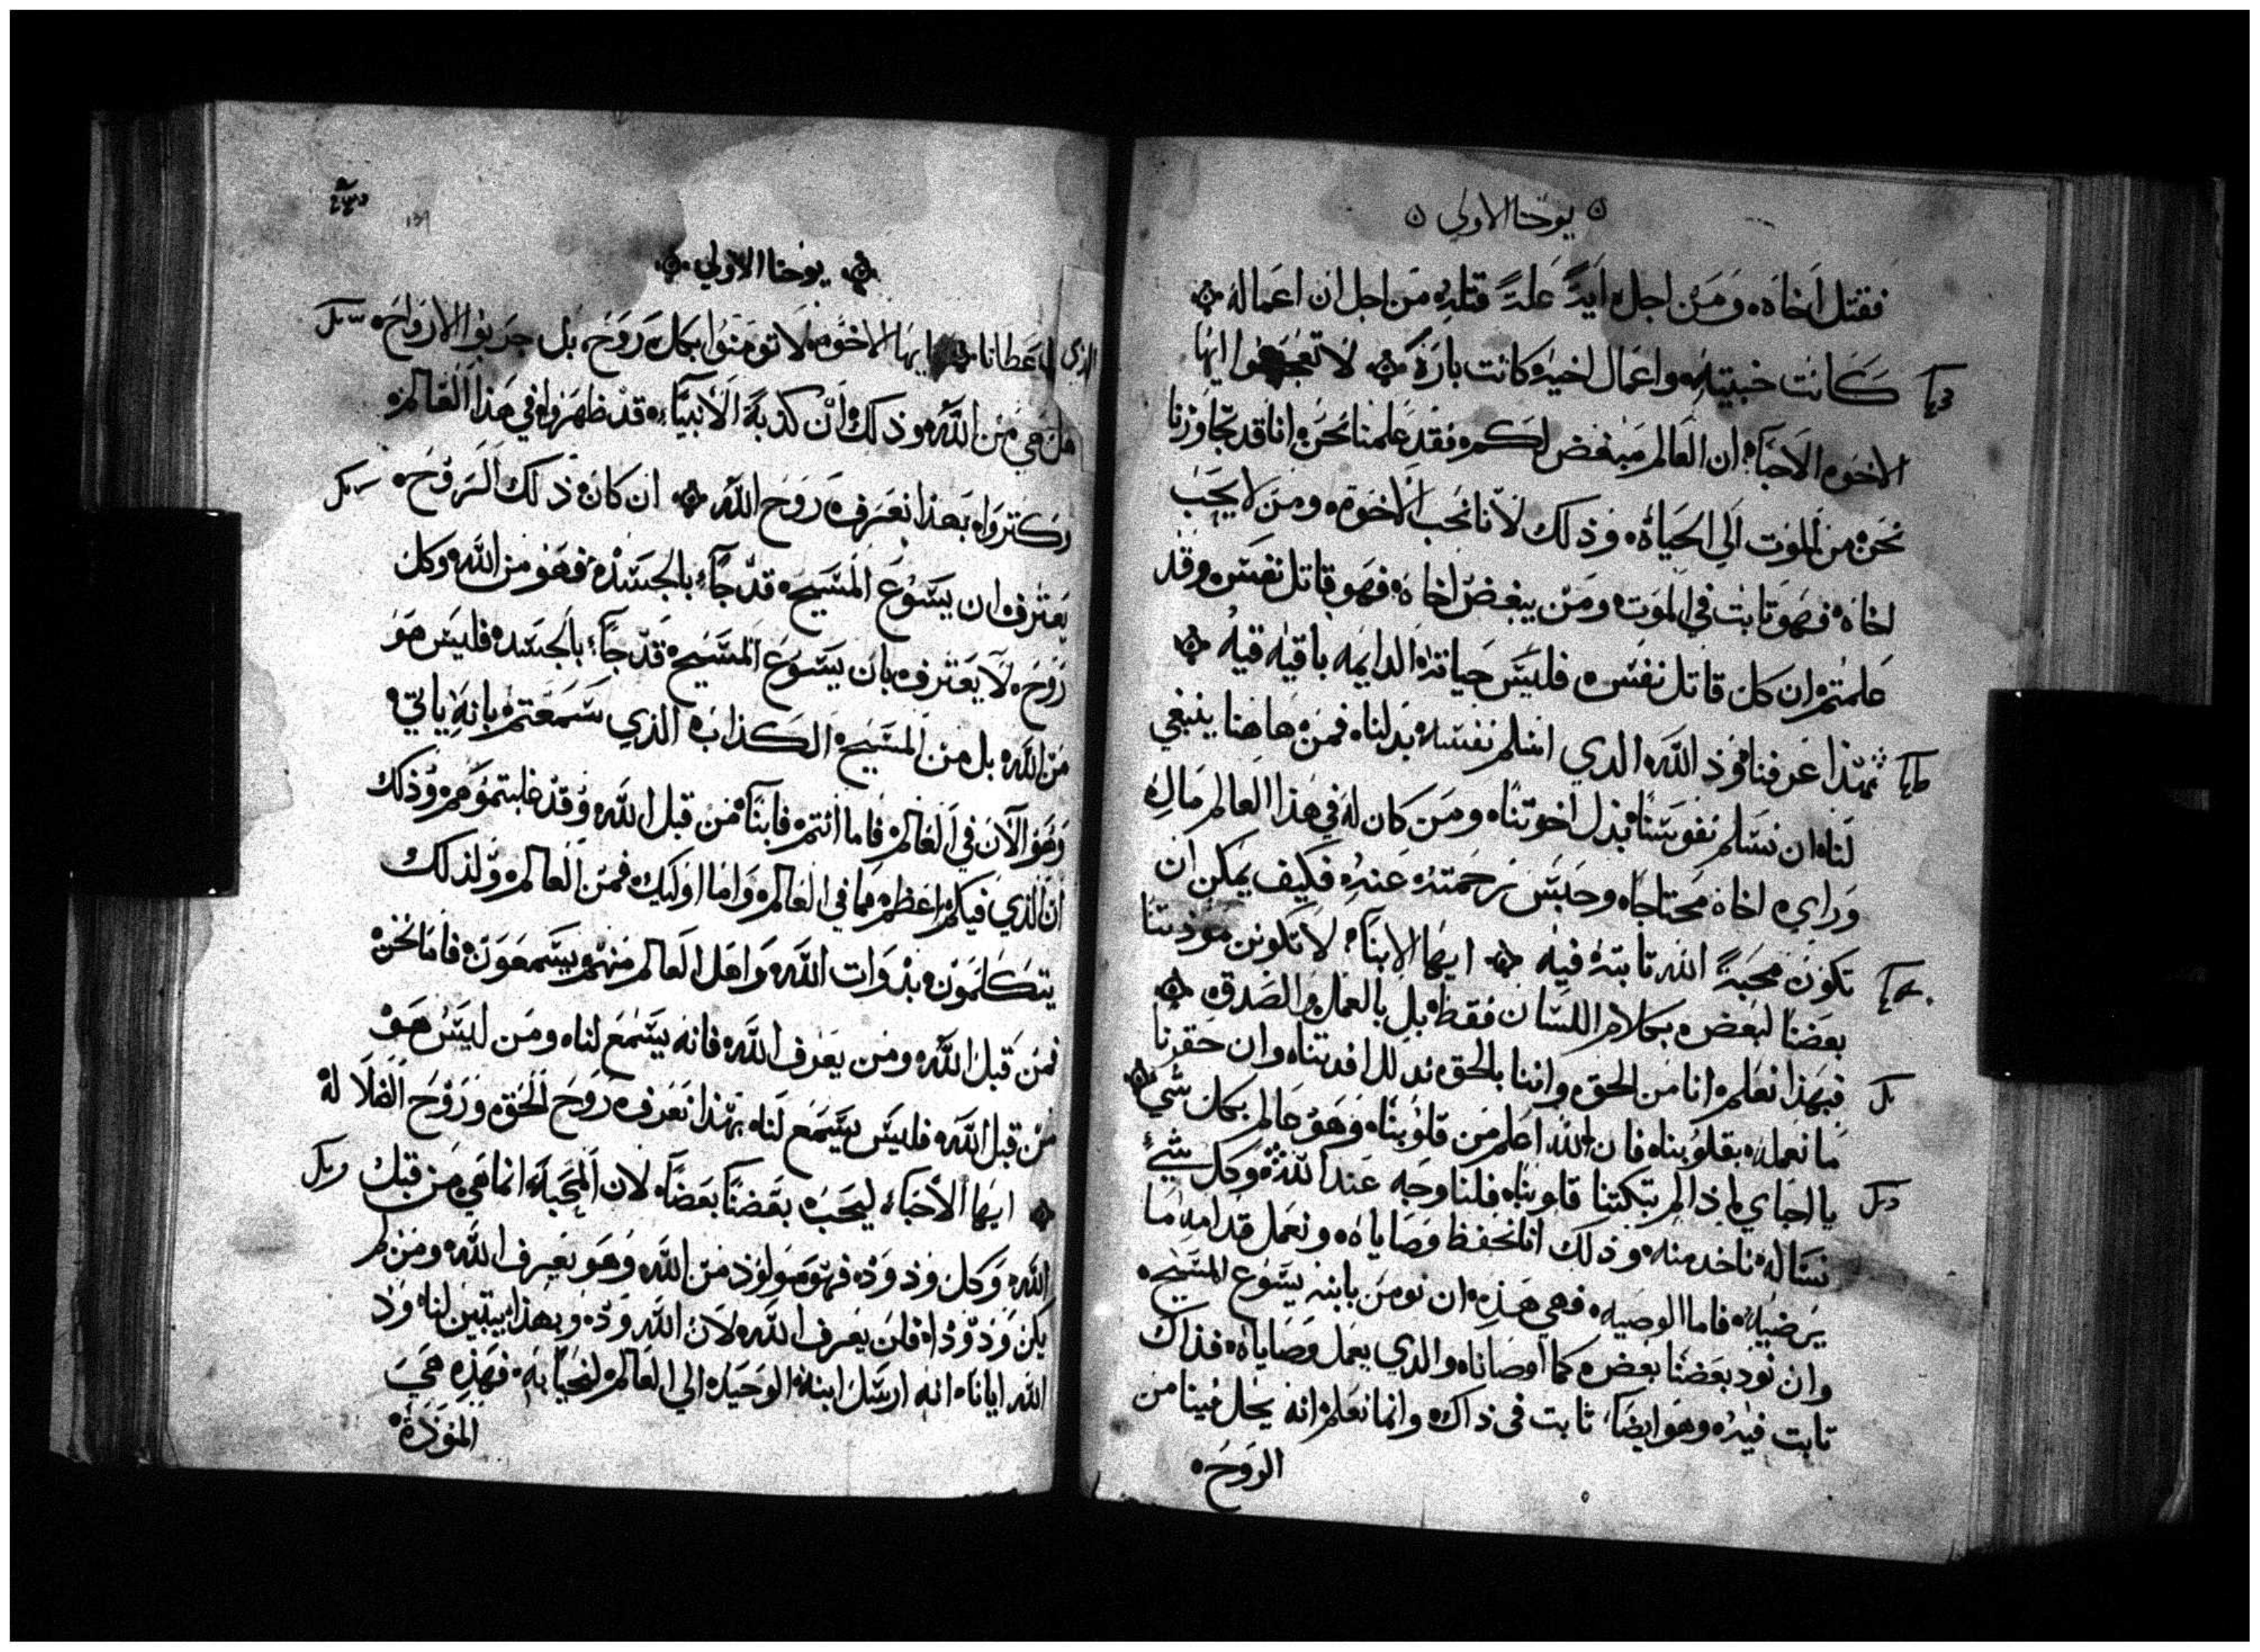 يوحنا الاولي
فقتل اخاه ومن اجل اية علة قتله من اجل ان اعماله
كانت خبيثه واعمال اخيه كانت بارة لا تعجبوا ايها
الاخوه الاحباء ان العالم مبغض لكم فقد علمنا نحن انا قد تجاوزنا
نحن من الموت الي الحياه وذلك لانا نحب الاخوة ومن لا يحب
اخاه فهو تابت في الموت ومن يبغض اخاه فهو قاتل نفس وقد
علمتم ان كل قاتل نفس فليس حياة الدايمه باقيه فيه
بهذا عرفنا ود الله الدي اسلم نفسه بدلنا فمن هاهنا ينبغي
لنا ان نسلم نفوسنا بدل اخوتنا ومن كان له في هذا العالم مال
وراي اخاه محتاجا وحبس رحمته عنه فكيف يمكن ان
تكون محبة الله تابته فيه ايها الابناء لا تكونن مودتنا
بعضنا لبعض بكلام اللسان فقط بل بالعمل والصدق
فبهذا نعلم انا من الحق واننا بالحق ندلل افدتنا وان حقرنا
ما نعمله بقلوبنا فان الله اعلم من قلوبنا وهو عالم بكل شي
يا احباي اذا لم تبكتنا قلوبنا فلنا وجه عند الله وكل شيء
نساله ناخد منه وذلك انا نحفظ وصاياه ونعمل قدامه ما
يرضيه فاما الوصيه فهي هذه ان نومن بابنه يسوع المسيح
وان نود بعضنا بعض كما اوصانا والدي يعمل وصاياه فذاك
تابت فيه وهو ايضا ثابت في ذاك وانما نعلم انه يحل فينا من
الروح
يوحنا الاولي
الذي اعطانا ايها الاخوه لا تومنوا بكل روح بل جربوا الارواح
هل هي من الله وذلك ان كذبة الانبياء قد ظهروا في هذا العالم
وكتروا بهذا نعرف روح الله ان كان ذلك الروح
يعترف ان يسوع المسيح قد جاء بالجسد فهو من الله وكل
روح لا يعترف بان يسوع المسيح قد جاء بالجسد فليس هو
من الله بل من المسيح الكذاب الذي سمعتم بانه ياتي
وهو الان في العالم فاما انتم فابناء من قبل الله وقد غلبتموهم وذلك
ان الذي فيكم اعظم مما في العالم واما اوليك فمن العالم ولذلك
يتكلمون بذوات الله واهل العالم منهم يسمعون فاما نحن
فمن قبل الله ومن يعرف الله فانه يسمع لنا ومن ليس هو
من قبل الله فليس يسمع لنا بهذا نعرف روح الحق وروح الضلاله
ايها الاحباء ليحب بعضنا بعضا لان المحبه انما هي من قبل
الله وكل ودود فهو مولود من الله وهو يعرف الله ومن لم
يكن ودودا فلن يعرف الله لان الله ود وبهذا يتبين لنا ود
الله ايانا انه ارسل ابنه الوحيد الي العالم لنحيا به فهذه هي
المودة